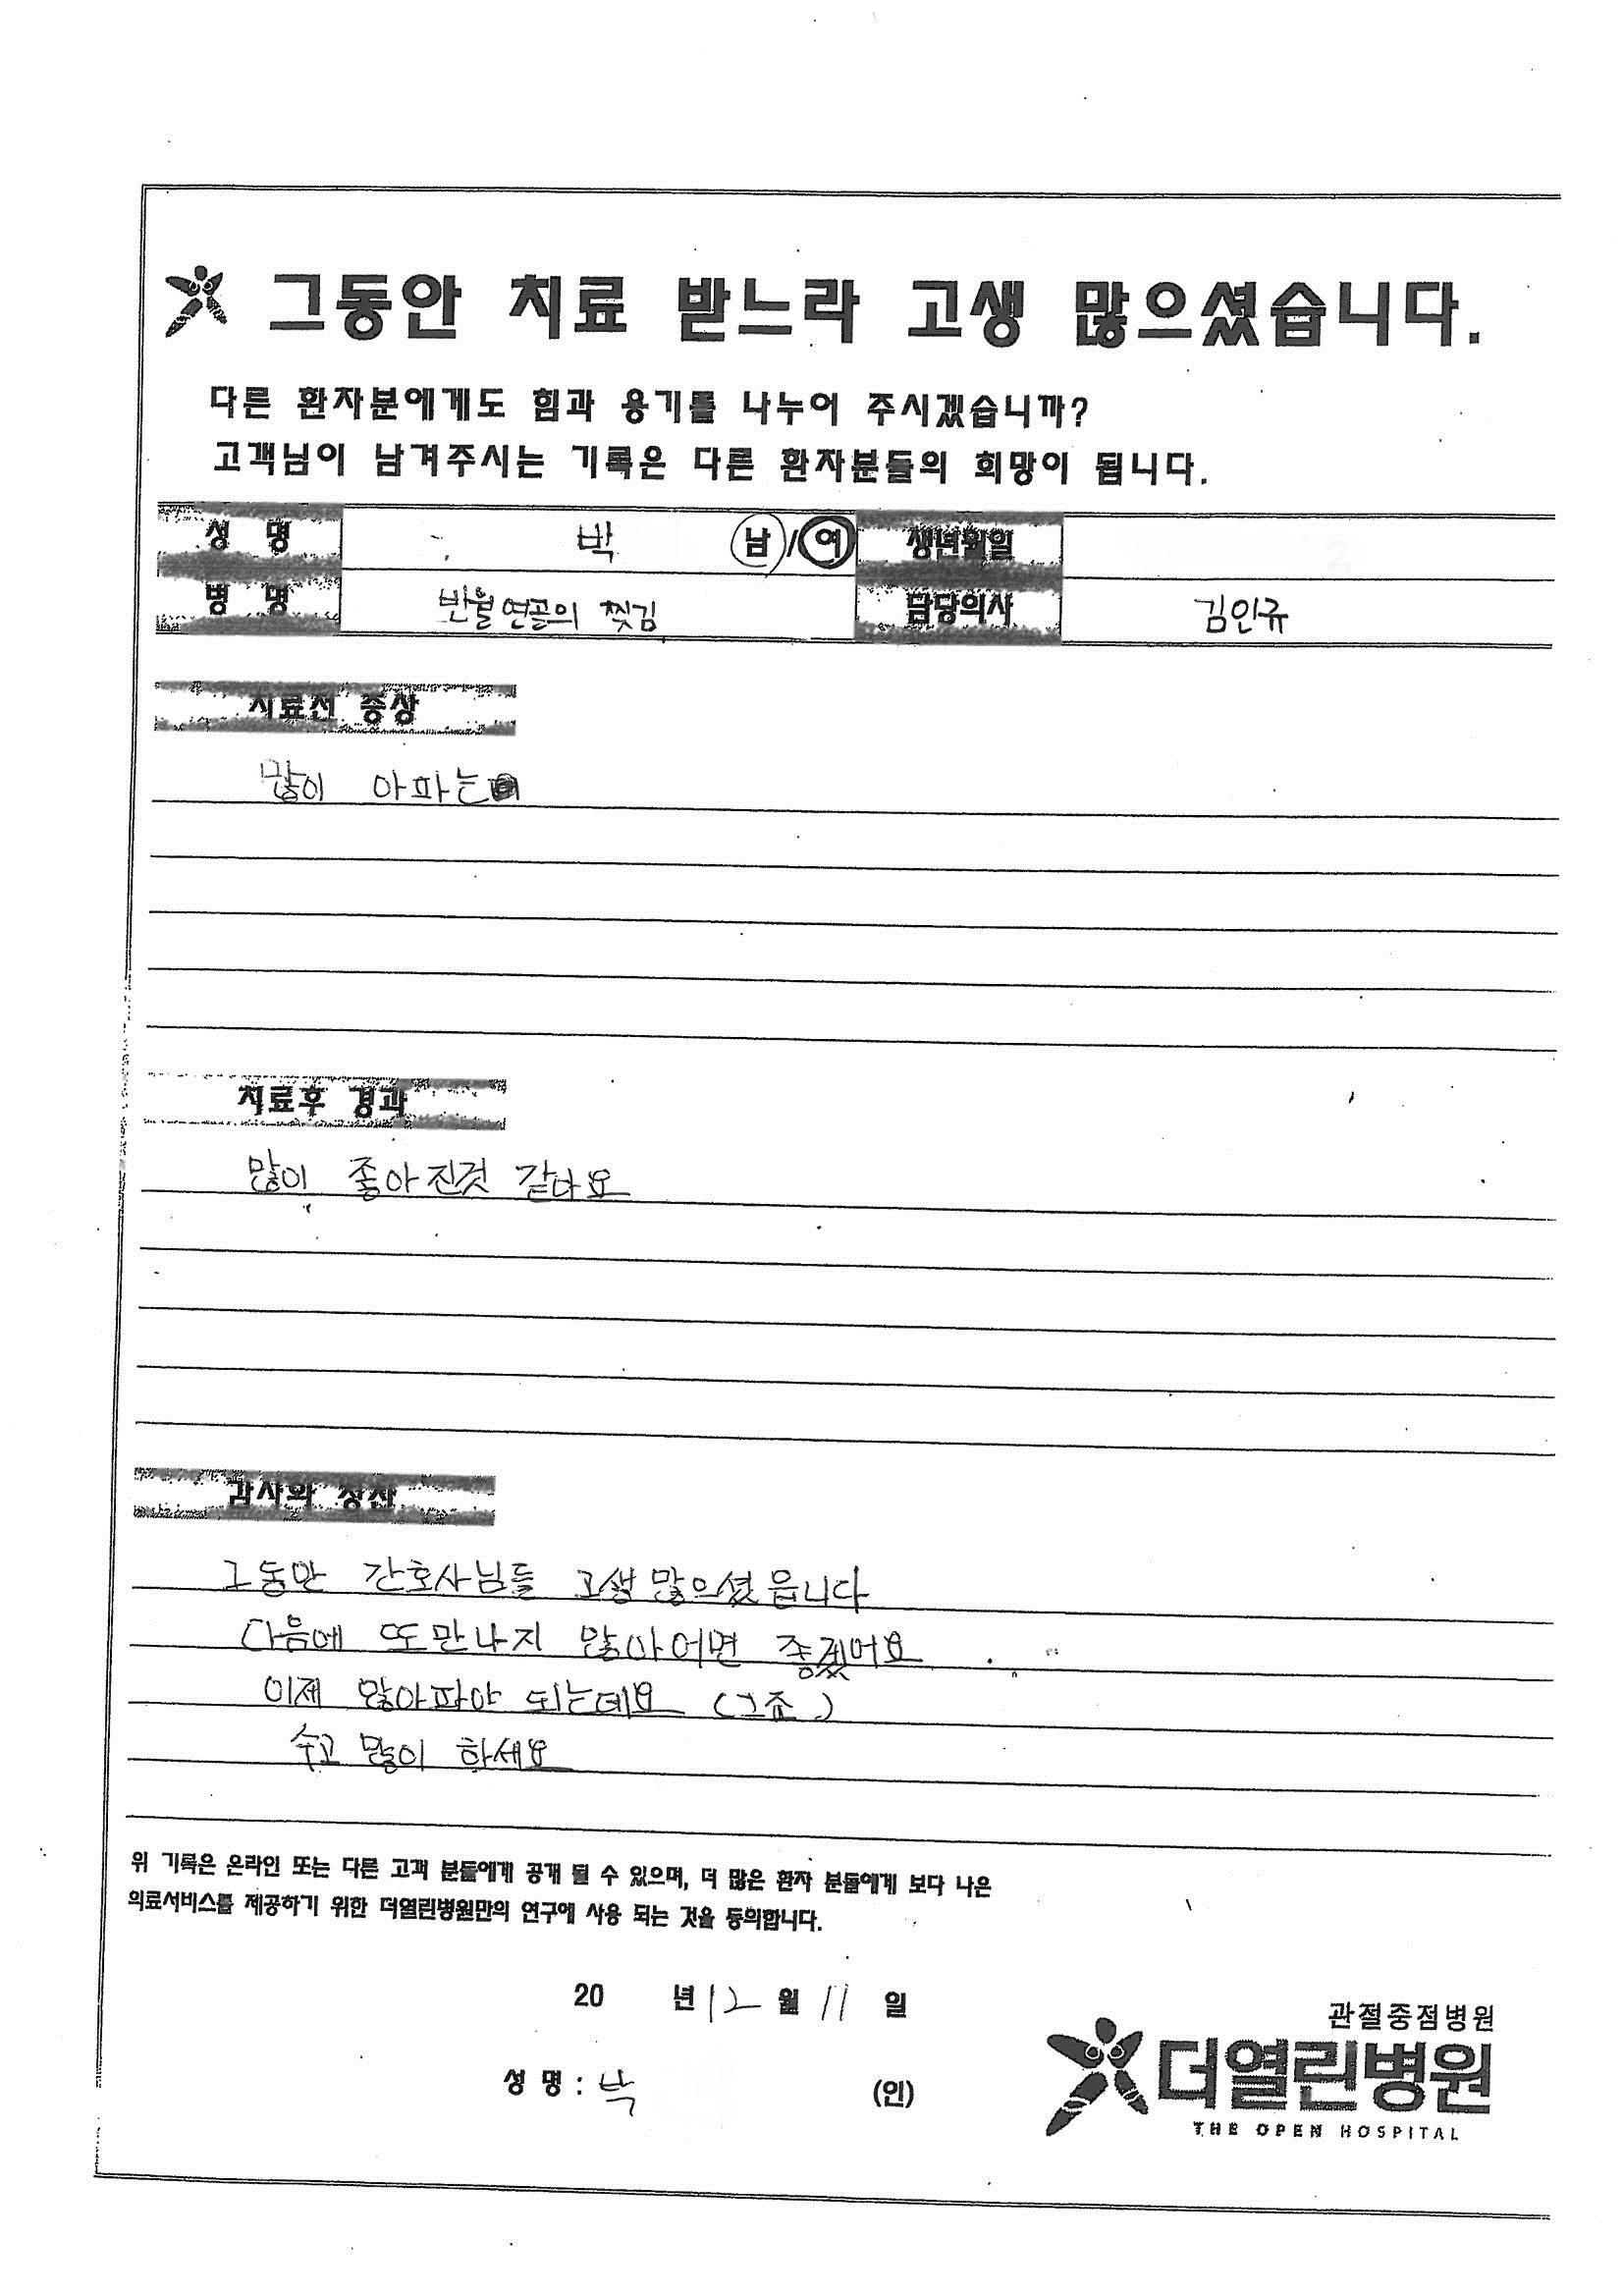 그동안 치료 받느라 고생 많으셨습니다.
다른 환자분에게도 힘과 용기를 나누어 주시겠습니까?
고객님이 남겨주시는 기록은 다른 환자분들의 희망이 됩니다.
성 명 박 남/여 생년월일
병 명 반월연골의 찢김 담당의사 김인규
치료전 증상
많이 아파는
치료후 경과
많이 좋아진것 같아요
감사와 칭찬
그동안 간호사님들 고생많으셨읍니다
다음에 또만나지 않아어면 좋겠어요
이제 않아파야 되는데요 (그죠)
수고 많이 하세요
위 기록은 온라인 또는 다른 고객 분들에게 공개 될 수 있으며, 더 많은 환자 분들에게 보다 나은
의료서비스를 제공하기 위한 더열린병원만의 연구에 사용 되는 것을 동의합니다.
20 년 12 월 11 일
성 명 : 박 (인)
관절중점병원
더열린병원
THE OPEN HOSPITAL